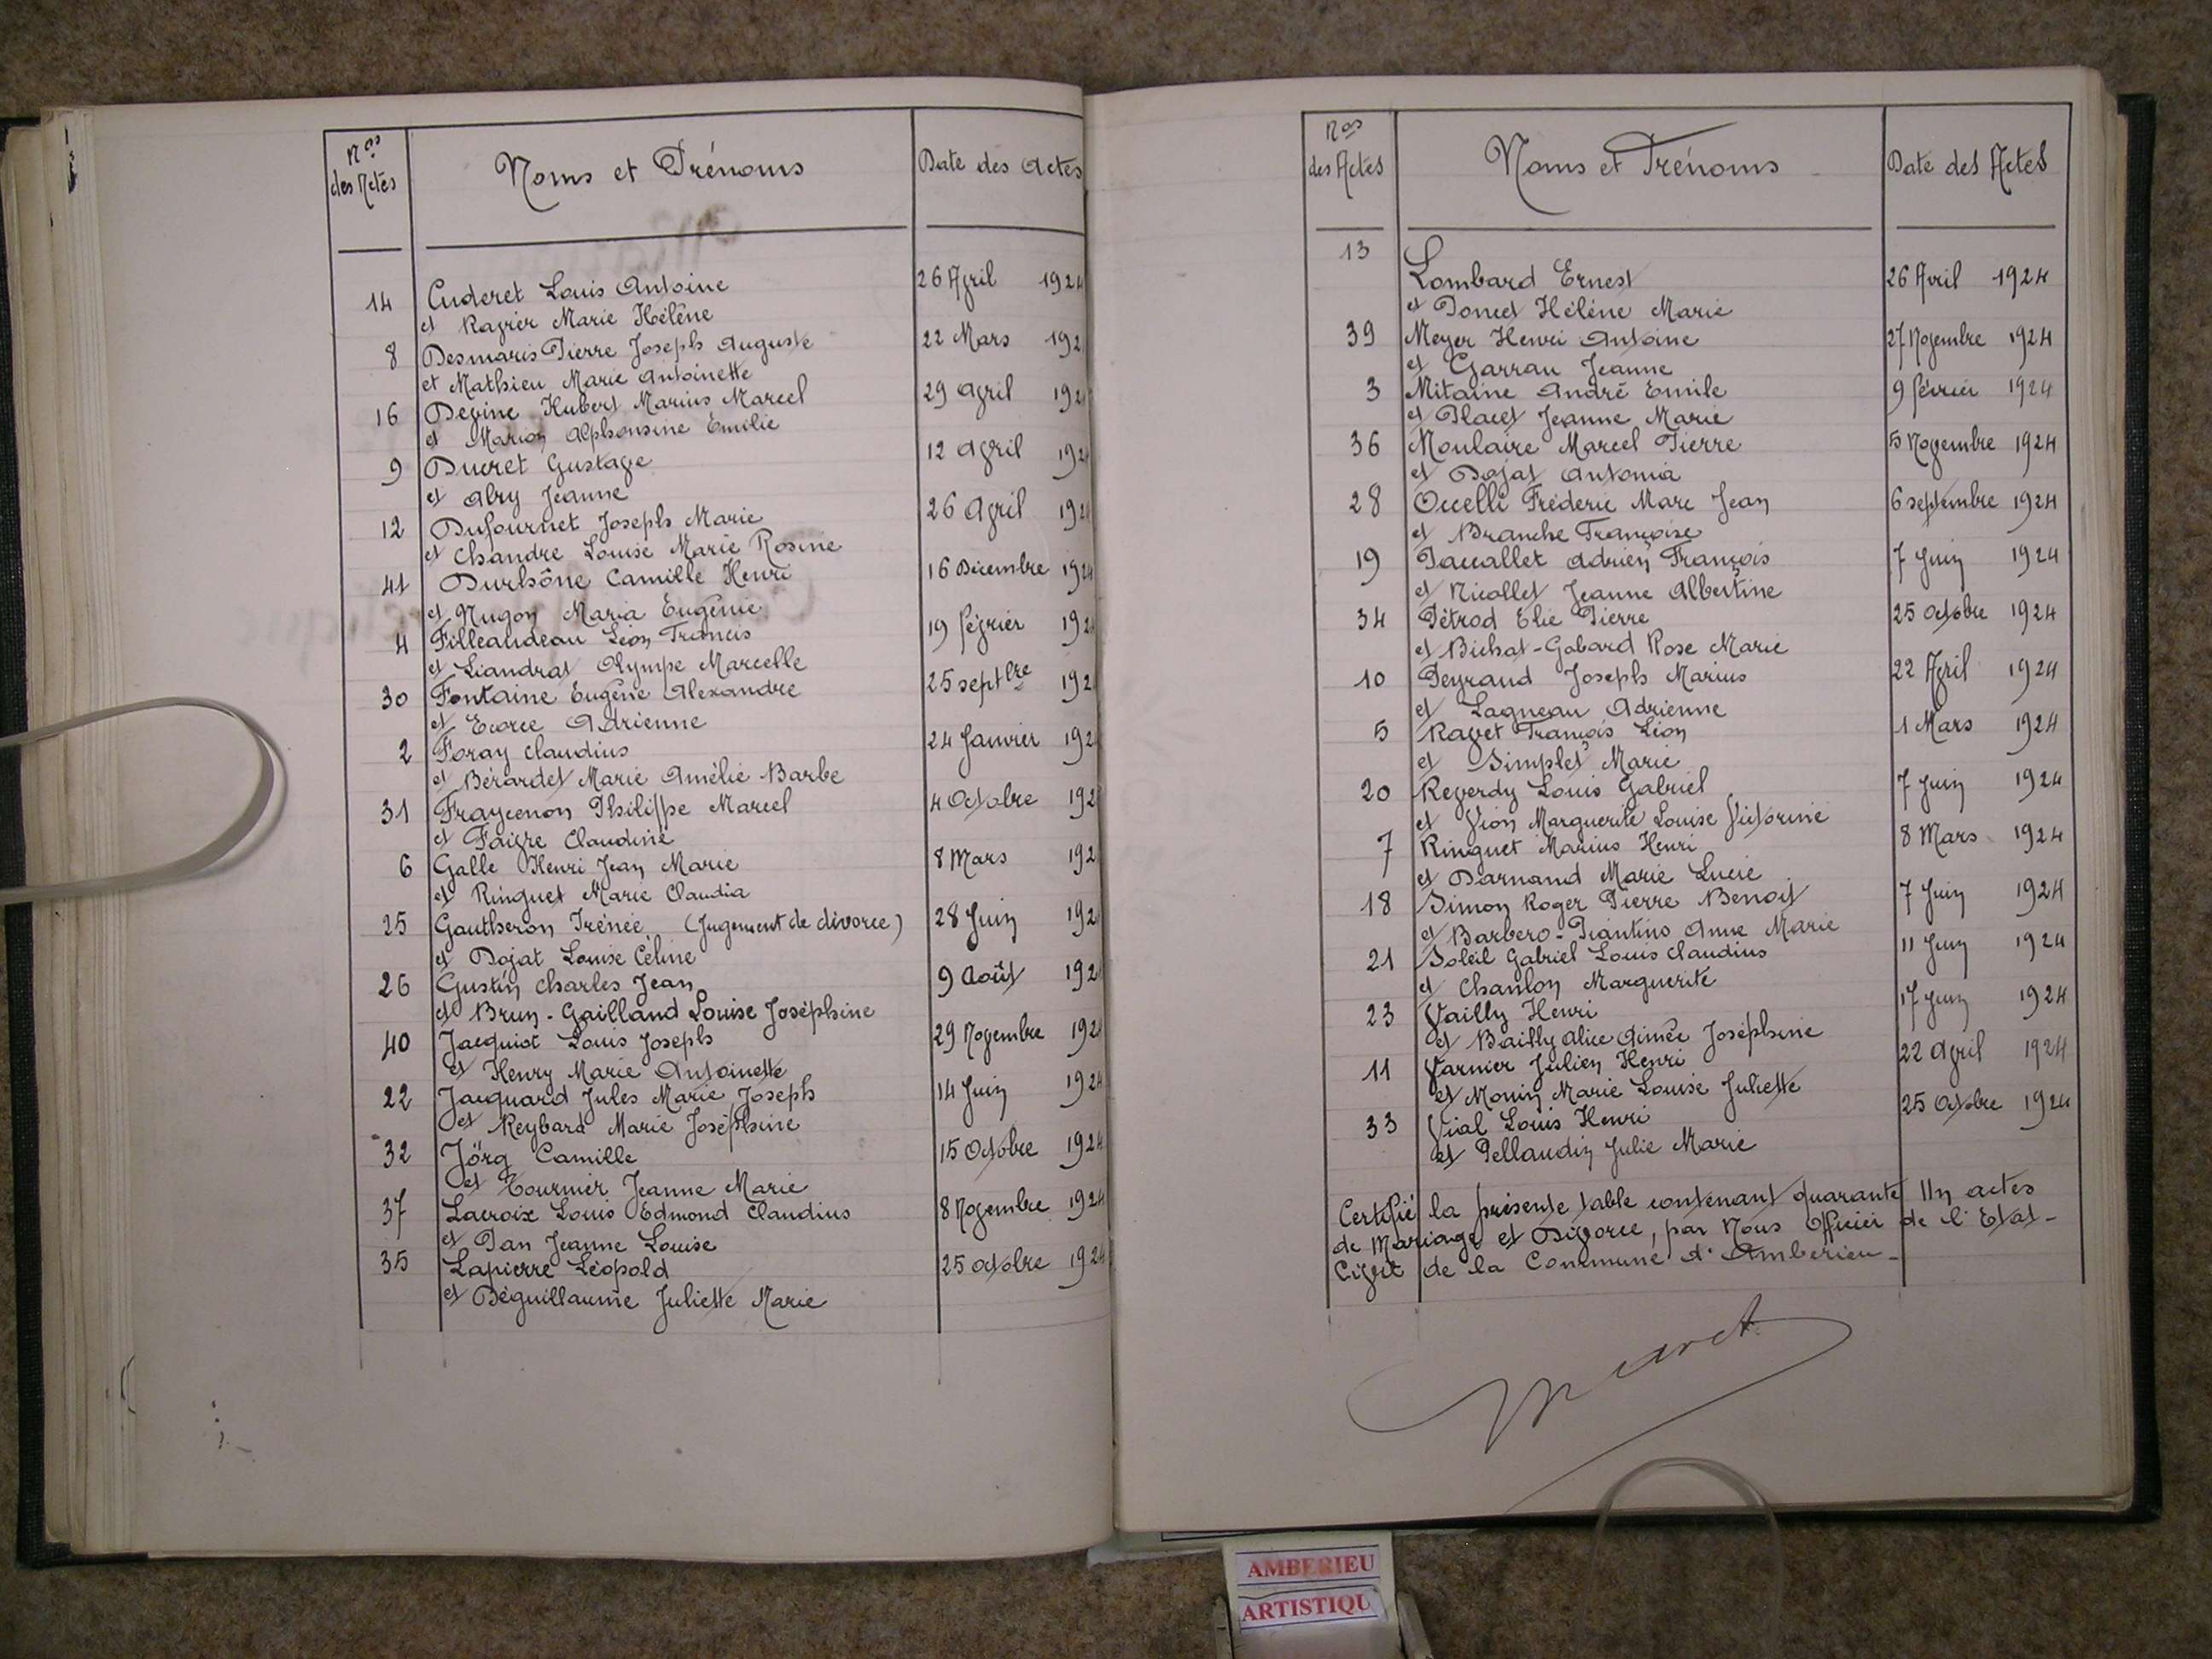 Nos des Actes Noms et Prénoms Date des Actes
14 Cuderet Louis Antoine 26 Avril 1924
et Ravier Marie Hélène
8 Desmaris Pierre Joseph Auguste 22 Mars 192
et Mathieu Marie Antoinette
16 Devine Hubert Marius Marcel 29 avril 192
et Marion Alphonsine Émilie
9 Ducret Gustave 12 avril 192
et Abry Jeanne
12 Dufournet Joseph Marie 26 Avril 192
et Chandre Louise Marie Rosine
41 Durhône Camille Henri 16 Décembre 1924
et Nugon Maria Eugénie
4 Filleaudeau Léon Francis 19 février 192
et Liandrat Olympe Marcelle
30 Fontaine Eugène Alexandre 25 septbre 192
et Ecorce Adrienne
2 Foray Claudius 24 Janvier 192
et Bérardet Marie Amélie Barbe
31 Fraycenon Philippe Marcel 4 Octobre 192
et Faivre Claudine
6 Galle Henri Jean Marie 8 Mars 192
et Ringuet Marie Claudia
25 Gautheron Irénée (Jugement de divorce) 28 Juin 192
et Dojat Louise Céline
26 Gustin Charles Jean 9 Août 192
et Brun-Gailland Louise Joséphine
40 Jacquiot Louis Joseph 29 Novembre 192
et Henry Marie Antoinette
22 Jacquard Jules Marie Joseph 14 Juin 1924
et Reybard Marie Joséphine
32 Jörg Camille 15 Octobre 1924
et Tournier Jeanne Marie
37 Lacroix Louis Edmond Claudius 8 Novembre 1924
et Pan Jeanne Louise
35 Lapierre Léopold 25 octobre 1924
et Déguillaume Juliette Marie
Nos des Actes Noms et Prénoms Date des Actes
13 Lombard Ernest 26 Avril 1924
et Poncet Hélène Marie
39 Meyer Henri Antoine 27 Novembre 1924
et Garrau Jeanne
3 Mitaine André Emile 9 février 1924
et Placet Jeanne Marie
36 Moulaire Marcel Pierre 5 Novembre 1924
et Dojat Antonia
28 Occelli Fréderic Marc Jean 6 septembre 1924
et Branche Françoise
19 Paccallet Adrien François 7 Juin 1924
et Nicollet Jeanne Albertine
34 Pétrod Elie Pierre 25 octobre 1924
et Bichat-Gobard Rose Marie
10 Peyraud Joseph Marius 22 Avril 1924
et Lagneau Adrienne
5 Ravet François Léon 1 Mars 1924
et Simplet Marie
20 Reverdy Louis Gabriel 7 Juin 1924
et Vion Marguerite Louise Victorine
7 Ringuet Marius Henri 8 Mars 1924
et Darnand Marie Lucie
18 Simon Roger Pierre Benoit 7 Juin 1924
et Barbero-Piantino Anne Marie
21 Soleil Gabriel Louis Claudius 11 Juin 1924
et Chanlon Marguerite
23 Vailly Henri 17 Juin 1924
et Bailly Alice Aimée Joséphine
11 Varnier Julien Henri 22 avril 1924
et Monin Marie Louise Juliette
33 Vial Louis Henri 25 Octobre 1924
et Pellaudin Julie Marie
Certifié la présente table contenant quarante Un actes
de Mariage et Divorce, par Nous Officier de l'Etat-
Civil de la Commune d'Amberieu-
AMBERIEU
ARTISTIQU